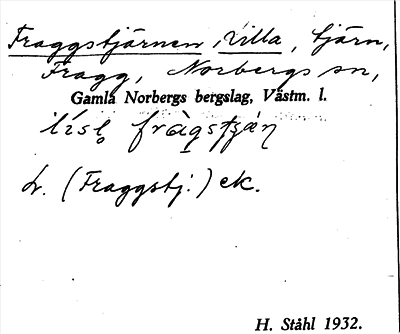 Fraggstjärnen, Lilla, tjärn,
Fragg, Norbergs sn,
Gamla Norbergs bergslag, Västm. l.
fràgstjä́n
(Fraggstj.) ek.
H. Ståhl 1932.